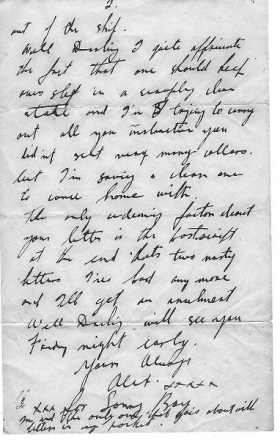 2.
out of the ship.
Well Darling I quite appreciate
the fact that one should keep
ones self in a scruply clean
state and I'm trying to carry
out all you instruction you
did nt sent very many collars.
but I'm saving a clean one
to come home with
The only redeming factor about
your letter is the postscript
at the end thats two nasty
letters I've had any more
and I'll get an anulment
Well Darling will see you
Friday night early.
Yours Always
Alet. xxxxx
xxx for Sonny Boy
the only one that goes about with
letters in my pocket.